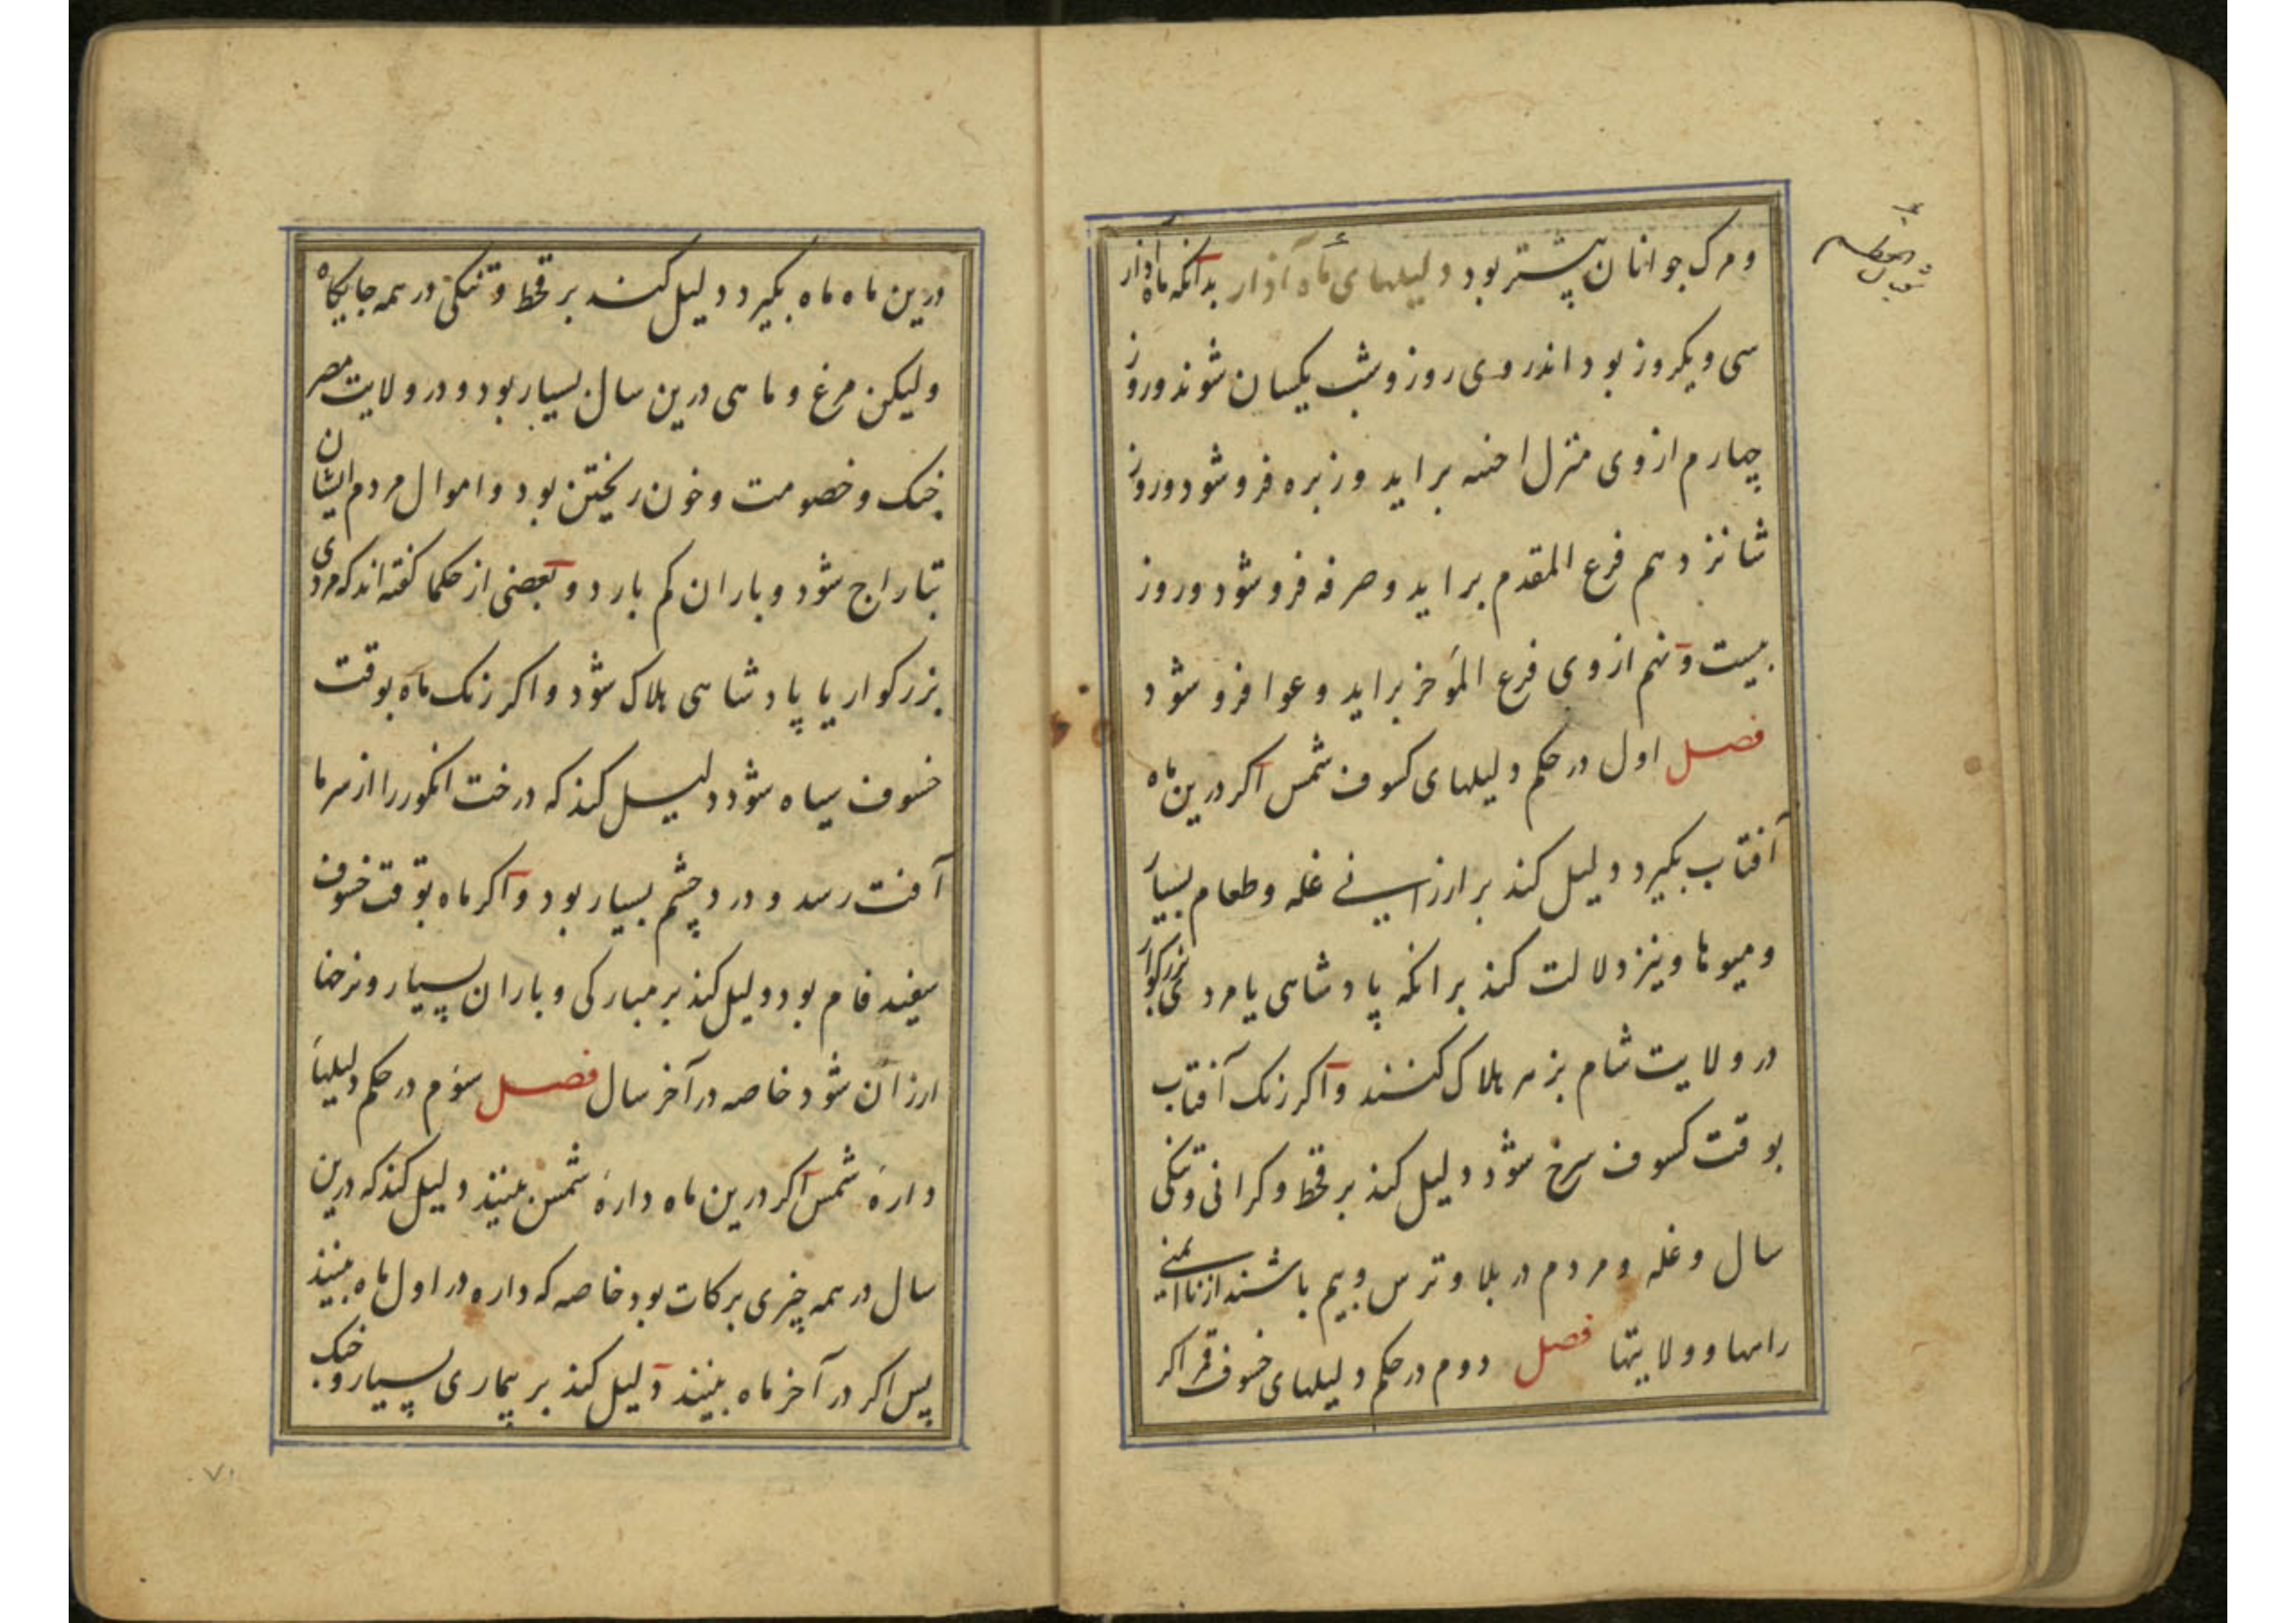 و مرک جوانان پیشتر بود دلیلهای ماه آذار بدآنکه ماه آذار
سی و یکروز بود اندر وی روز و شب یکسان شوند و روز
چهارم از وی منزل اخبیه براید و زبره فرو شود و روز
شانزدهم فرع المقدم براید و صرفه فرو شود و روز
بیست و نهم از وی فرع المؤخر براید و عوا فرو شود
فصل اول در حکم دلیلهای کسوف شمس اکر درین ماه
آفتاب بکیرد دلیل کند بر ارزانی غله و طعام بسیار
و میوها و نیز دلالت کند بر انکه پادشاهی یا مردی بزرکوار
در ولایت شام بزهر هلاک کنند و اکر رنک آفتاب
بوقت کسوف سرخ شود دلیل کند بر قحط و کرانی و تنکی
سال و غله و مردم در بلا و ترس و بیم باشند از ناایمنی
راهها و ولایتها فصل دوم در حکم دلیلهای خسوف قمر اکر
درین ماه ماه بکیرد دلیل کند بر قحط و تنکی در همه جایکاه
ولیکن مرغ و ماهی درین سال بسیار بود و در ولایت مصر
جنک و خصومت و خون ریختن بود و اموال مردم ایشان
بتاراج شود و باران کم بارد و بعضی از حکما کفته اند که مردی
بزرکوار یا پادشاهی هلاک شود و اکر رنک ماه بوقت
خسوف سیاه شود دلیل کند که درخت انکور را از سرما
آفت رسد و درد چشم بسیار بود و اکر ماه بوقت خسوف
سفید فام بود دلیل کند بر مبارکی و باران بسیار و نرخها
ارزان شود خاصه در آخر سال فصل سوم در حکم دلیلهاء
دارهٔ شمس اکر درین ماه دارهٔ شمس بینند دلیل کند که درین
سال در همه چیزی برکات بود خاصه که داره در اول ماه بینند
پس اکر در آخر ماه بینند دلیل کند بر بیماری بسیار و جنک
٧٠